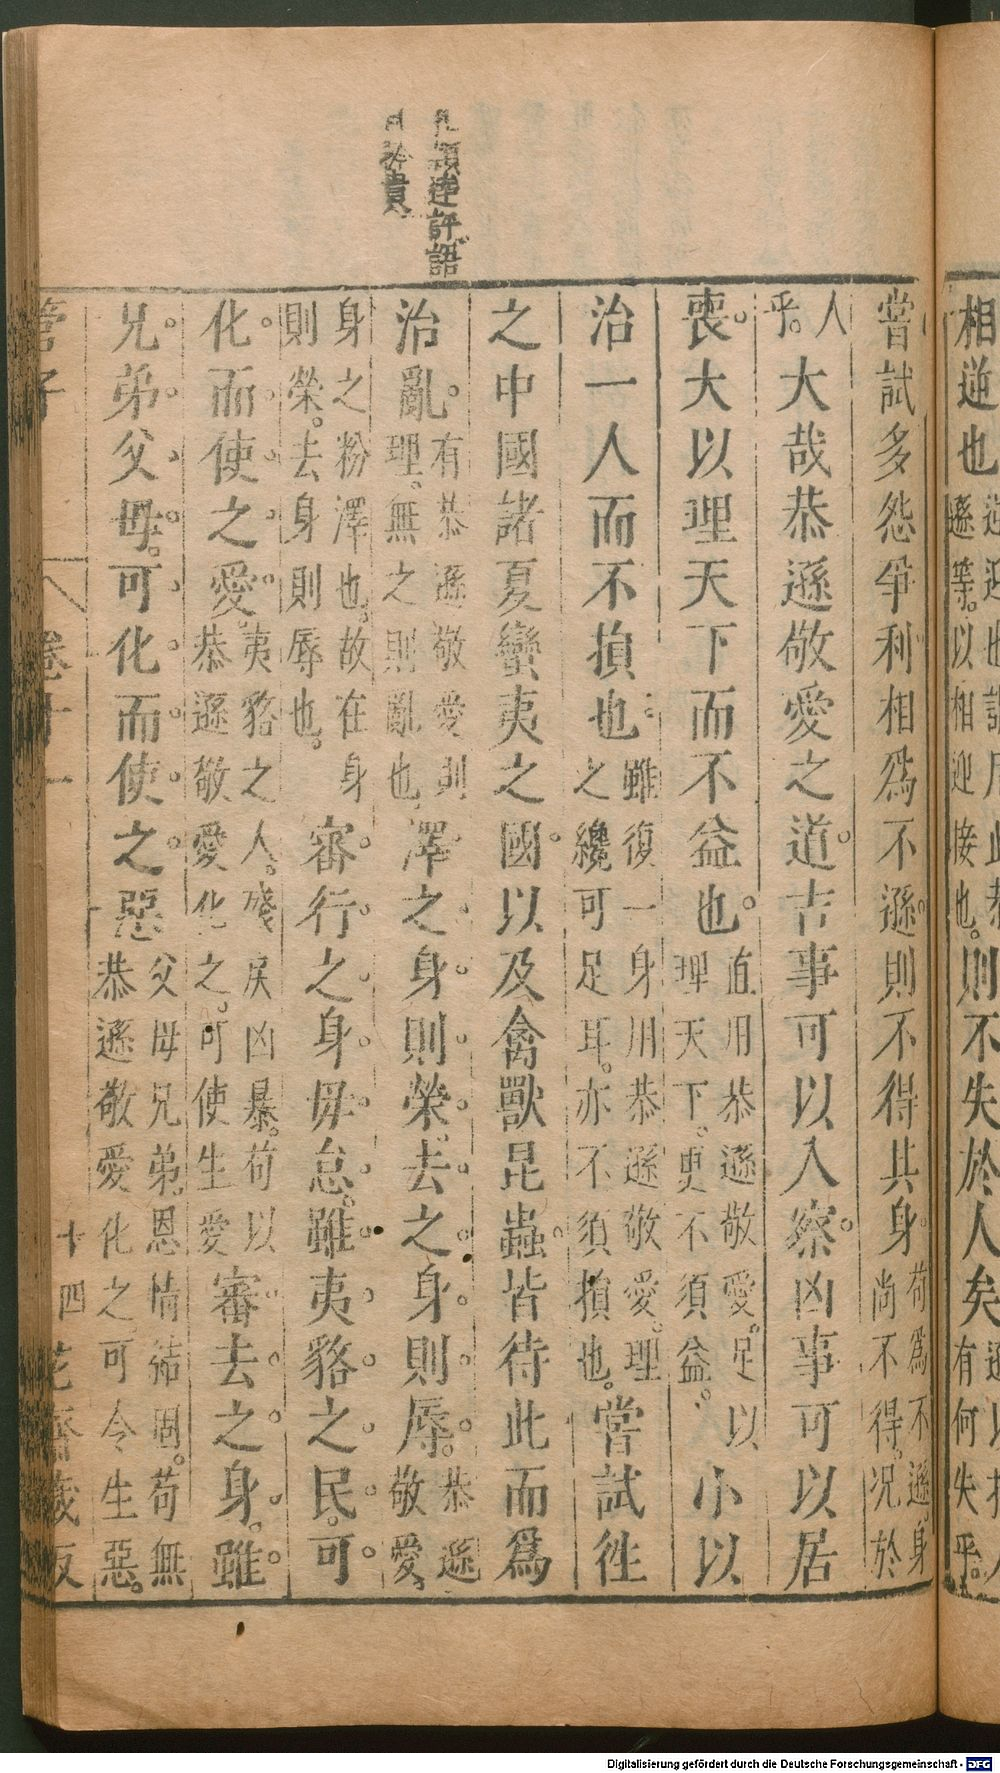 相逆也逆迎也謂用此恭遜等。以相迎接也。則不失於人矣遜以接人有何失乎。
嘗試多怨爭利相爲不遜。則不得其身。苟爲不遜。身尚不得。況於
人乎。大哉恭遜敬愛之道。吉事可以入察。凶事可以居
喪。大以理天下而不益也。直用恭遜敬愛。足以理天下。更不須益。小以
治一人而不損也。雖復一身用恭遜敬愛。理之纔可足耳。亦不須損也。嘗試往
之中國諸夏蠻夷之國。以及禽獸昆蟲。皆待此而爲
治亂。有恭遜敬愛則理。無之則亂也。澤之身則榮。去之身則辱。恭遜敬愛。
身之粉澤也。故在身則榮。去身則辱也。審行之身毋怠。雖夷貉之民。可
化而使之愛。夷貉之人。殘戾凶暴。苟以恭遜敬愛化之。可使生愛審去之身。雖
兄弟父母。可化而使之惡父母兄弟。恩情結固。苟無恭遜敬愛化之可令生惡。
達評語
貴
管子 卷十一 十四 花齋藏板
Digitalisierung gefördert durch die Deutsche Forschungsgemeinschaft - DFG